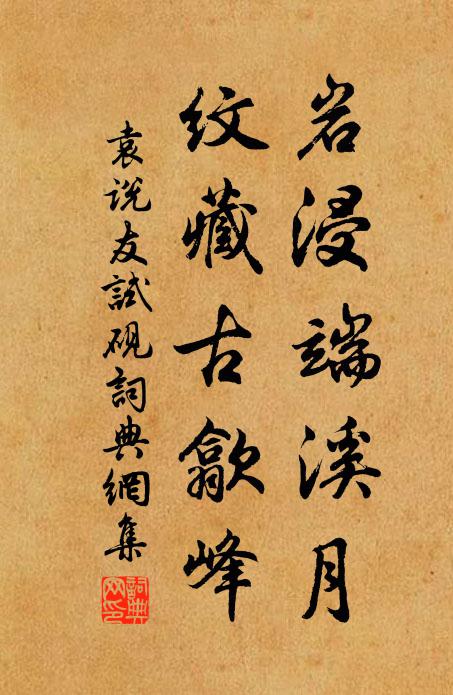 岩浸端溪月
紋藏古歙峰
袁说友試硯詞典網集
詞典網印